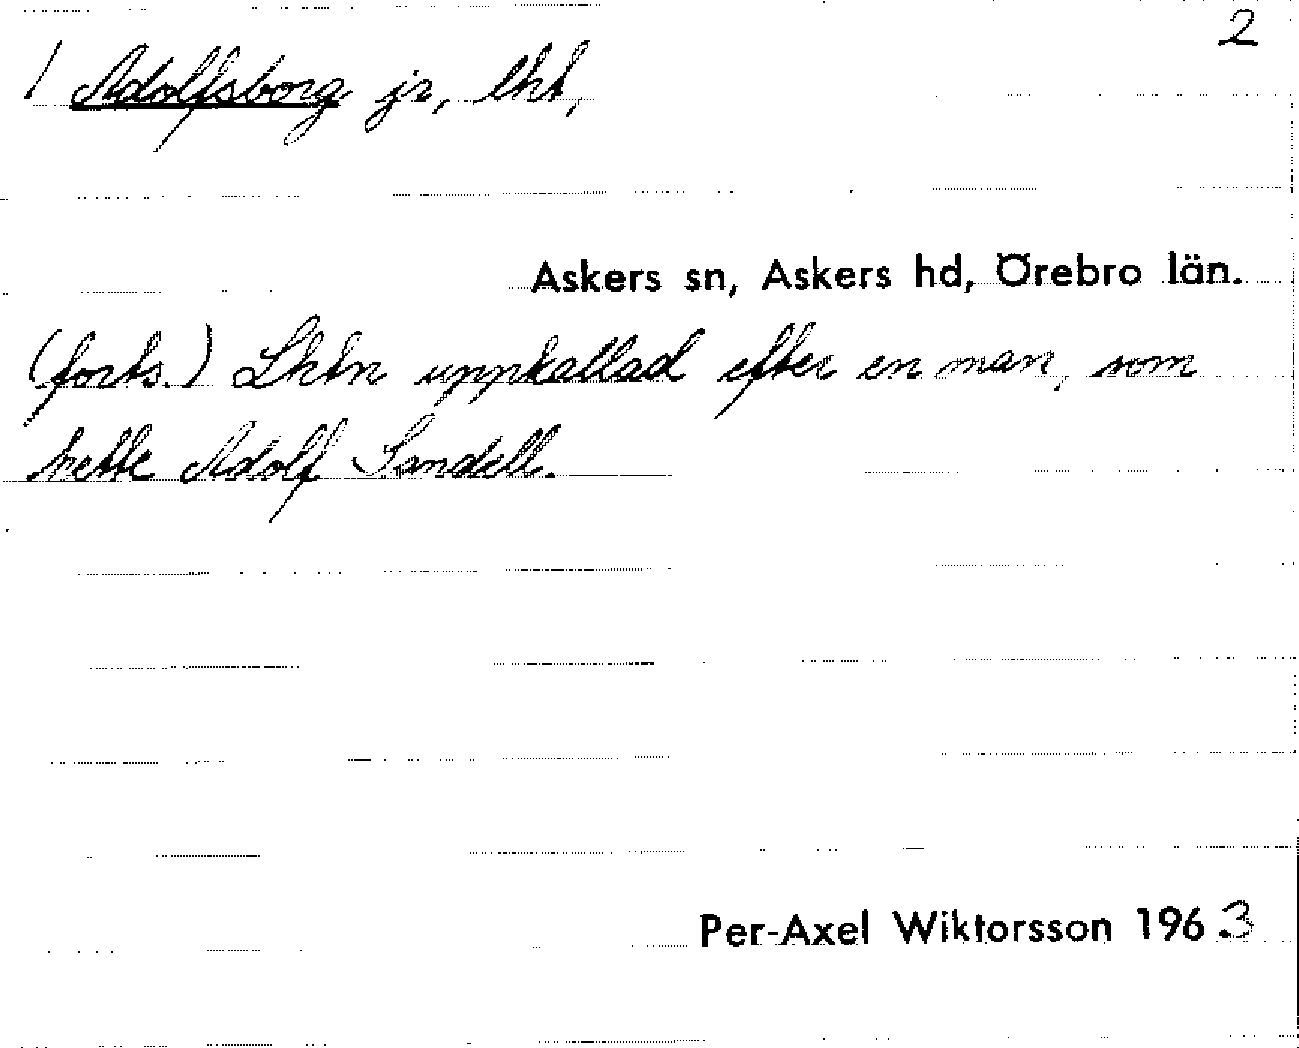 2
/ Adolfsborg jr, lht,
Askers sn, Askers hd, Örebro län.
(forts.) Lhtn uppkallad efter en man, som
hette Adolf Sandell.
Per-Axel Wiktorsson 1963